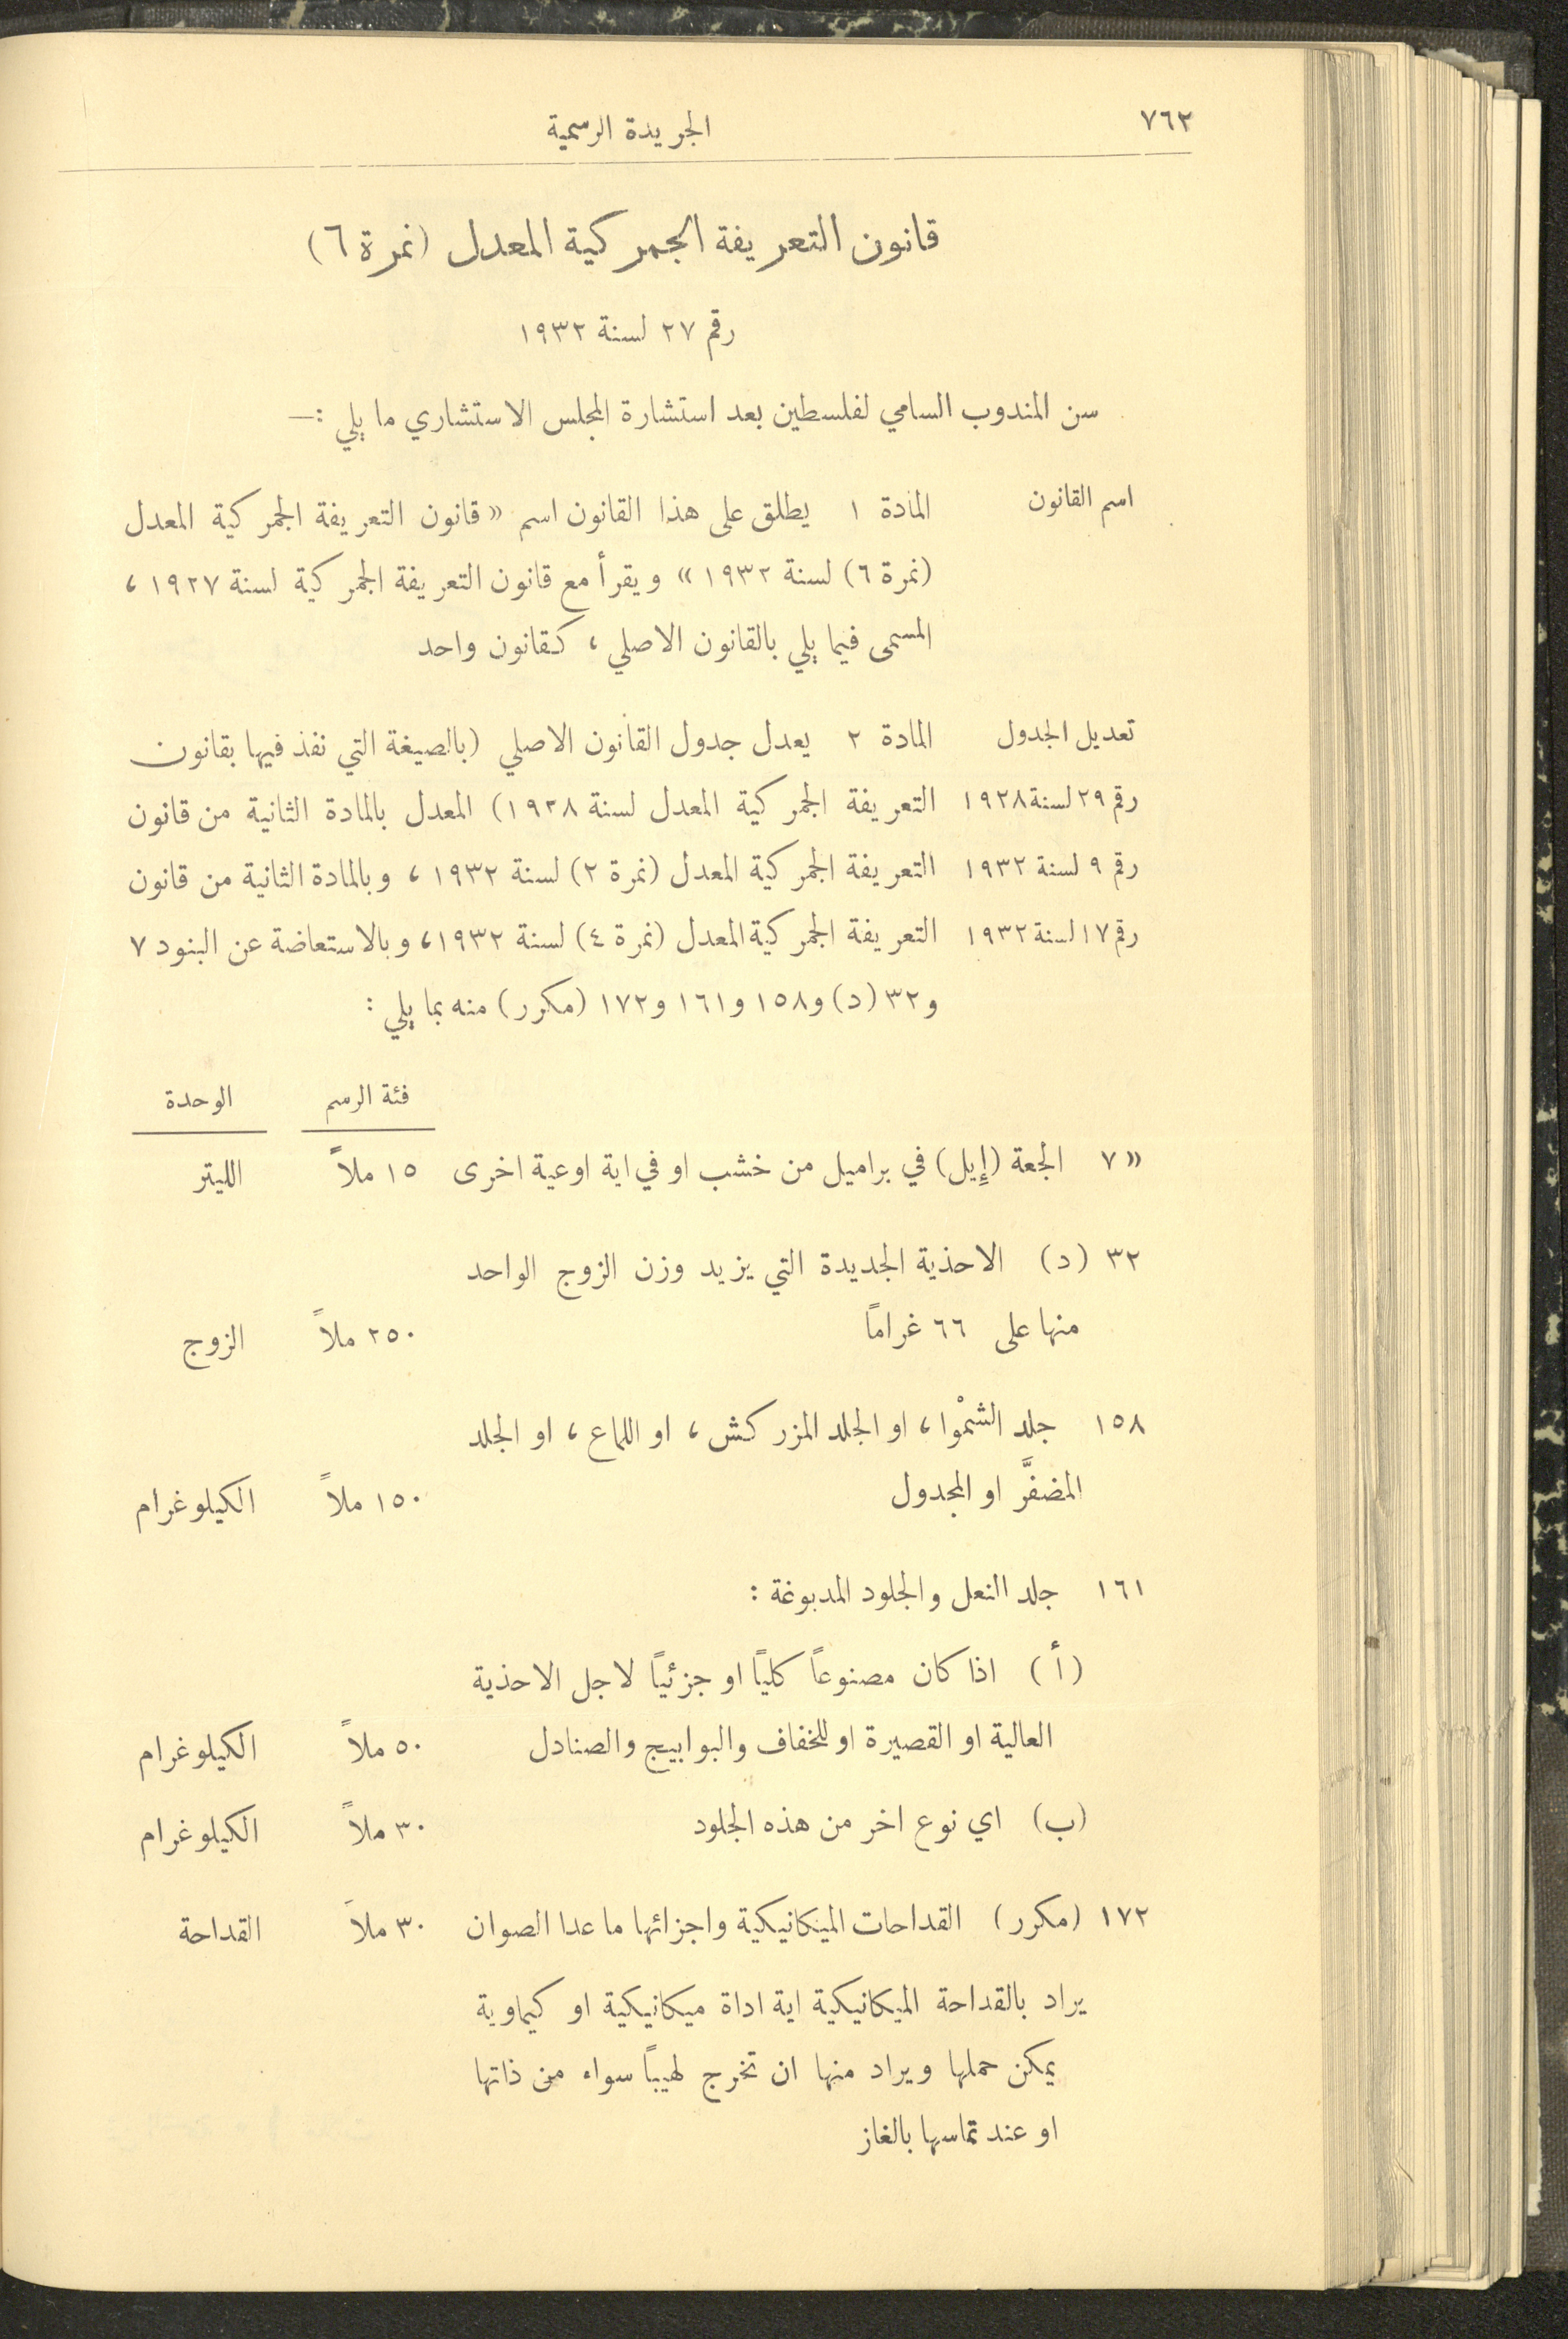 ٧٦٢
الجريدة الرسمية
قانون التعريفة الجمركية المعدل (نمرة ٦)
رقم ٢٧ لسنة ١٩٣٢
سن المندوب السامي لفلسطين بعد استشارة المجلس الاستشاري ما يلي :—
اسم القانون المادة ١ يطلق على هذا القانون اسم « قانون التعريفة الجمركية المعدل
(نمرة ٦) لسنة ١٩٣٢ » ويقرأ مع قانون التعريفة الجمركية لسنة ١٩٢٧ ،
المسمى فيما يلي بالقانون الاصلي ، كقانون واحد
تعديل الجدول المادة ٢ يعدل جدول القانون الاصلي (بالصيغة التي نفذ فيها بقانون
رقم ٢٩ لسنة ١٩٢٨ التعريفة الجمركية المعدل لسنة ١٩٢٨) المعدل بالمادة الثانية من قانون
رقم ٩ لسنة ١٩٣٢ التعريفة الجمركية المعدل (نمرة ٢) لسنة ١٩٣٢ ، وبالمادة الثانية من قانون
رقم ١٧ لسنة ١٩٣٢ التعريفة الجمركية المعدل (نمرة ٤) لسنة ١٩٣٢ ، وبالاستعاضة عن البنود ٧
و٣٢ (د) و١٥٨ و١٦١ و١٧٢ (مكرر) منه بما يلي :
فئة الرسم الوحدة
« ٧ الجعة (إيل) في براميل من خشب او في اية اوعية اخرى ١٥ ملاً الليتر
٣٢ (د) الاحذية الجديدة التي يزيد وزن الزوج الواحد
منها على ٦٦ غراماً ٢٥٠ ملاً الزوج
١٥٨ جلد الشمْوا ، او الجلد المزركش ، او اللماع ، او الجلد
المضفَّر او المجدول ١٥٠ ملاً الكيلوغرام
١٦١ جلد النعل والجلود المدبوغة :
(أ) اذا كان مصنوعاً كلياً او جزئياً لاجل الاحذية
العالية او القصيرة او للخفاف والبوابيج والصنادل ٥٠ ملاً الكيلوغرام
(ب) اي نوع اخر من هذه الجلود ٣٠ ملاً الكيلوغرام
١٧٢ (مكرر) القداحات الميكانيكية واجزائها ما عدا الصوان ٣٠ ملاً القداحة
يراد بالقداحة الميكانيكية اية اداة ميكانيكية او كيماوية
يمكن حملها ويراد منها ان تخرج لهيباً سواء من ذاتها
او عند تماسها بالغاز